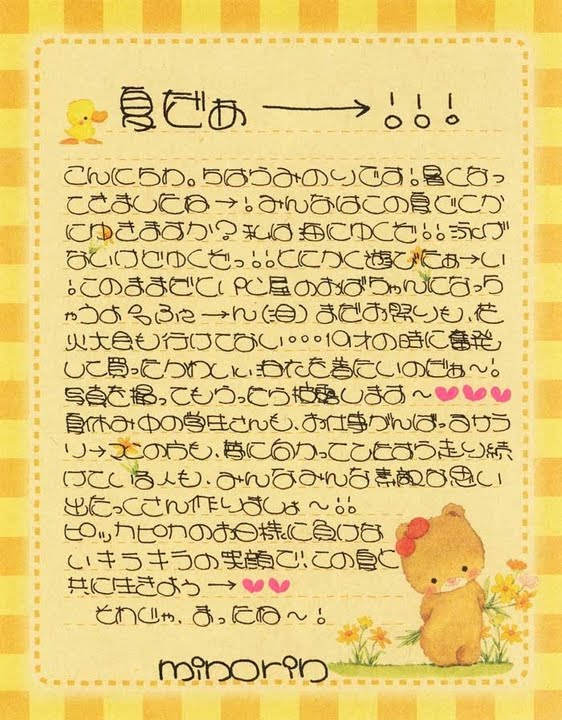 夏だぁ→!!!
こんにちわ。ちはらみのりです!暑くなっ
てきましたね→!みんなはこの夏どこか
にゆきますか?私は海にゆくぞ!!泳げ
ないけどゆくぞっ!!とにかく遊びたぁ→い
!このままだといPC屋のおばちゃんになっち
ゃうよぅふぅ→ん(泣)まだお祭りも、花
火大会も行けてない…19才の時に奮発
して買ったかわいいゆかたを着たいのだぁ〜!
写真を撮ってもらったら披露します〜♥♥♥
夏休み中の学生さんも、お仕事がんばってるサラ
リ→マンの方も、夢に向かってひたすら走り続
けている人も、みんなみんな素敵な思い
出たっくさん作りましょ〜!!
ピッカピカのお日様に負けな
いキラキラの笑顔で、この夏と
共に生きよう→♥♥
それじゃ、まったね〜!
minorin